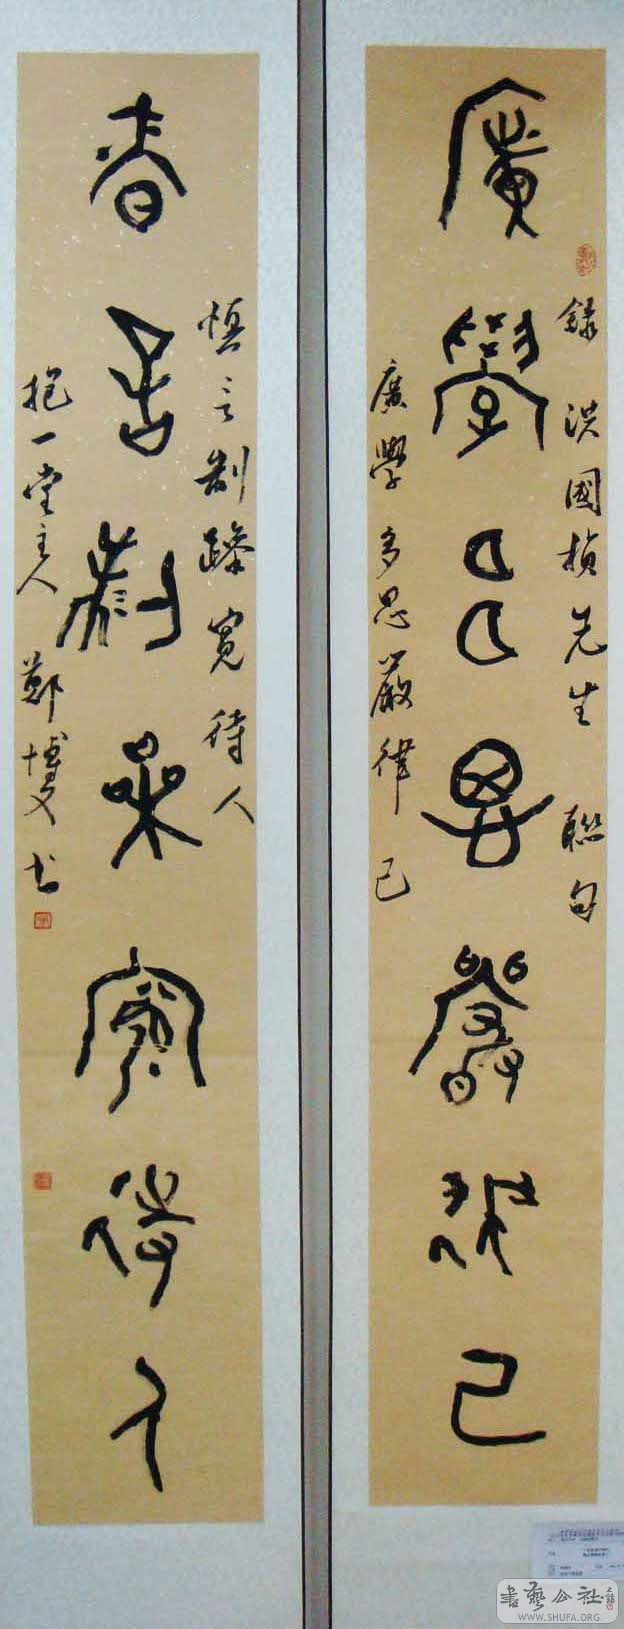 廣學多思嚴律己
錄洪國楨先生聯句
廣學多思嚴律己
慎言制躁寬待人
慎言制躁寬待人
抱一堂主人鄭博文书
書藝公社
WWW.SHUFA.ORG